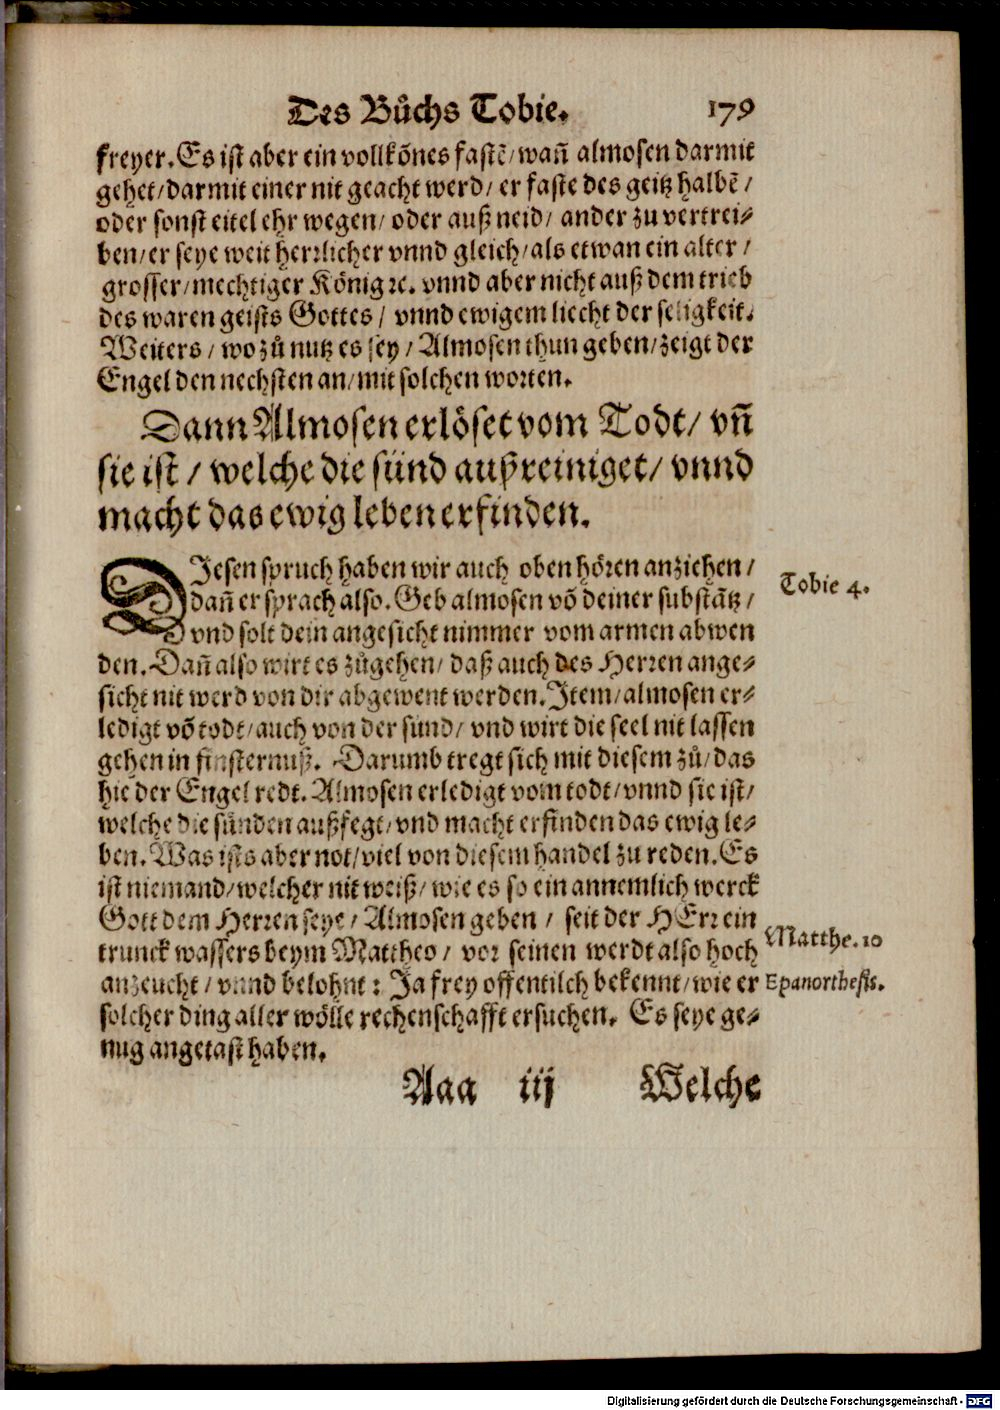 Des Bůchs Tobie. 179
freyer. Es ist aber ein vollkõnes fastẽ/ wañ almosen darmit
gehet/ darmit einer nit geacht werd/ er faste des geitz halbẽ/
oder sonst eitel ehr wegen/ oder auß neid/ ander zu vertrei-
ben/ er seye weit herrlicher vnnd gleich/ als etwan ein alter/
grosser/ mechtiger König ꝛc. vnnd aber nicht auß dem trieb
des waren geists Gottes/ vnnd ewigem liecht der seligkeit.
Weiters/ wo zů nutz es sey/ Almosen thun geben/ zeigt der
Engel den nechsten an/ mit solchen worten.
Dann Almosen erlöset vom Todt/ vñ
sie ist/ welche die sünd außreiniget/ vnnd
macht das ewig leben erfinden.
DIesen spruch haben wir auch oben hören anziehen/
dañ er sprach also. Geb almosen võ deiner substãtz/
vnd solt dein angesicht nimmer vom armen abwen
den. Dañ also wirt es zůgehen/ daß auch des Herren ange-
sicht nit werd von dir abgewent werden. Item/ almosen er-
ledigt võ todt/ auch von der sünd/ vnd wirt die seel nit lassen
gehen in finsternuß. Darumb tregt sich mit diesem zů/ das
hie der Engel redt. Almosen erledigt vom todt/ vnnd sie ist/
welche die sünden außfegt/ vnd macht erfinden das ewig le-
ben. Was ists aber not/ viel von diesem handel zu reden. Es
ist niemand/ welcher nit weiß/ wie es so ein annemlich werck
Gott dem Herren seye/ Almosen geben/ seit der HErr ein
trunck wassers beym Mattheo/ vor seinen werdt also hoch
anzeucht/ vnnd belohnt: Ja frey offentilch bekennt/ wie er
solcher ding aller wölle rechenschafft ersuchen. Es seye ge-
nug angetast haben.
Aaa iij Welche
Tobie 4.
Matthe. 10
Epanorthesis.
Digitalisierung gefördert durch die Deutsche Forschungsgemeinschaft - DFG